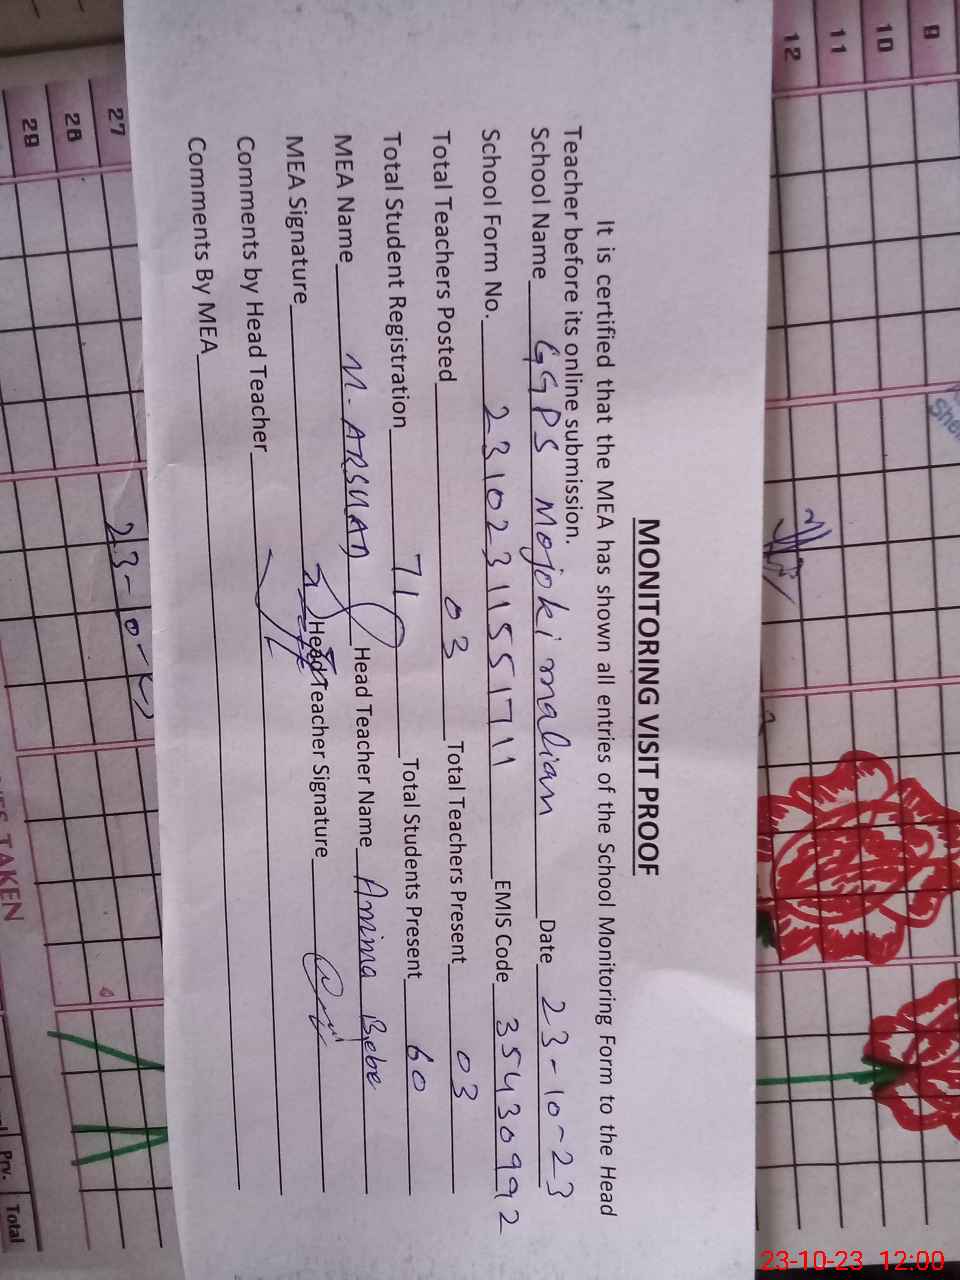 MONITORING VISIT PROOF
It is certified that the MEA has shown all entries of the School Monitoring Form to the Head
Teacher before its online submission.
School Name GGPS Mojoki malian Date 23-10-23
School Form No. 23102311551711 EMIS Code 35430992
Total Teachers Posted 03 Total Teachers Present 03
Total Student Registration 71 Total Students Present 60
MEA Name M. ARSHAD Head Teacher Name Amima Bebe
MEA Signature Head Teacher Signature
Comments by Head Teacher
Comments By MEA
9
10
11
12
27
28
29
23-10-
TAKEN
Prv.
Total
23-10-23 12:00